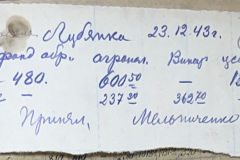 Лубянка 23.12.43г.
фонд обр. агропол. Випар це
- 480. 600 50 —
237 30 362 70
Принял, Мельниченко